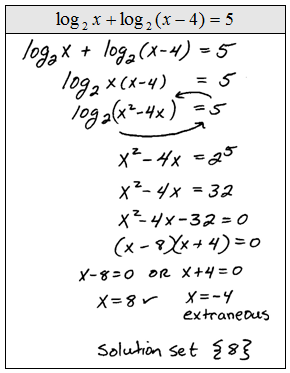 log₂ x + log₂ (x − 4) = 5
log₂x + log₂(x-4) = 5
log₂ x(x-4) = 5
log₂(x²-4x) = 5
x²-4x = 2⁵
x²-4x = 32
x²-4x-32 = 0
(x-8)(x+4) = 0
x-8=0 OR x+4=0
x=8 ✓ x=-4
extraneous
Solution set {8}